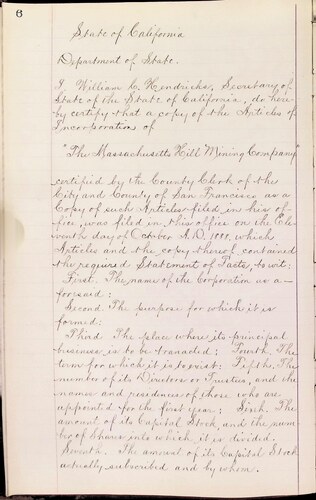 6
State of California
Department of State.
I, William C. Hendricks, Secretary of
State of the State of California, do here-
by certify that a copy of the Articles of
Incorporation of
"The Massachusetts Hill Mining Company"
certified by the County Clerk of the
City and County of San Francisco as a
Copy of such Articles filed in his of-
fice, was filed in this office on the Ele-
venth day of October A.D. which
Articles and the copy thereof contained
the required Statement of Facts, to wit:
First. The name of the Corporation as a-
foresaid:
Second. The purpose for which it is
formed:
Third. The place where its principal
business is to be transacted: Fourth. The
term for which it is to exist: Fifth, The
number of its Directors or Trustees, and the
names and residences of those who are
appointed for the first year: Sixth. The
amount of its Capital Stock, and the num-
ber of Shares into which it is divided.
Seventh. The amount of its Capital Stock
actually subscribed and by whom.